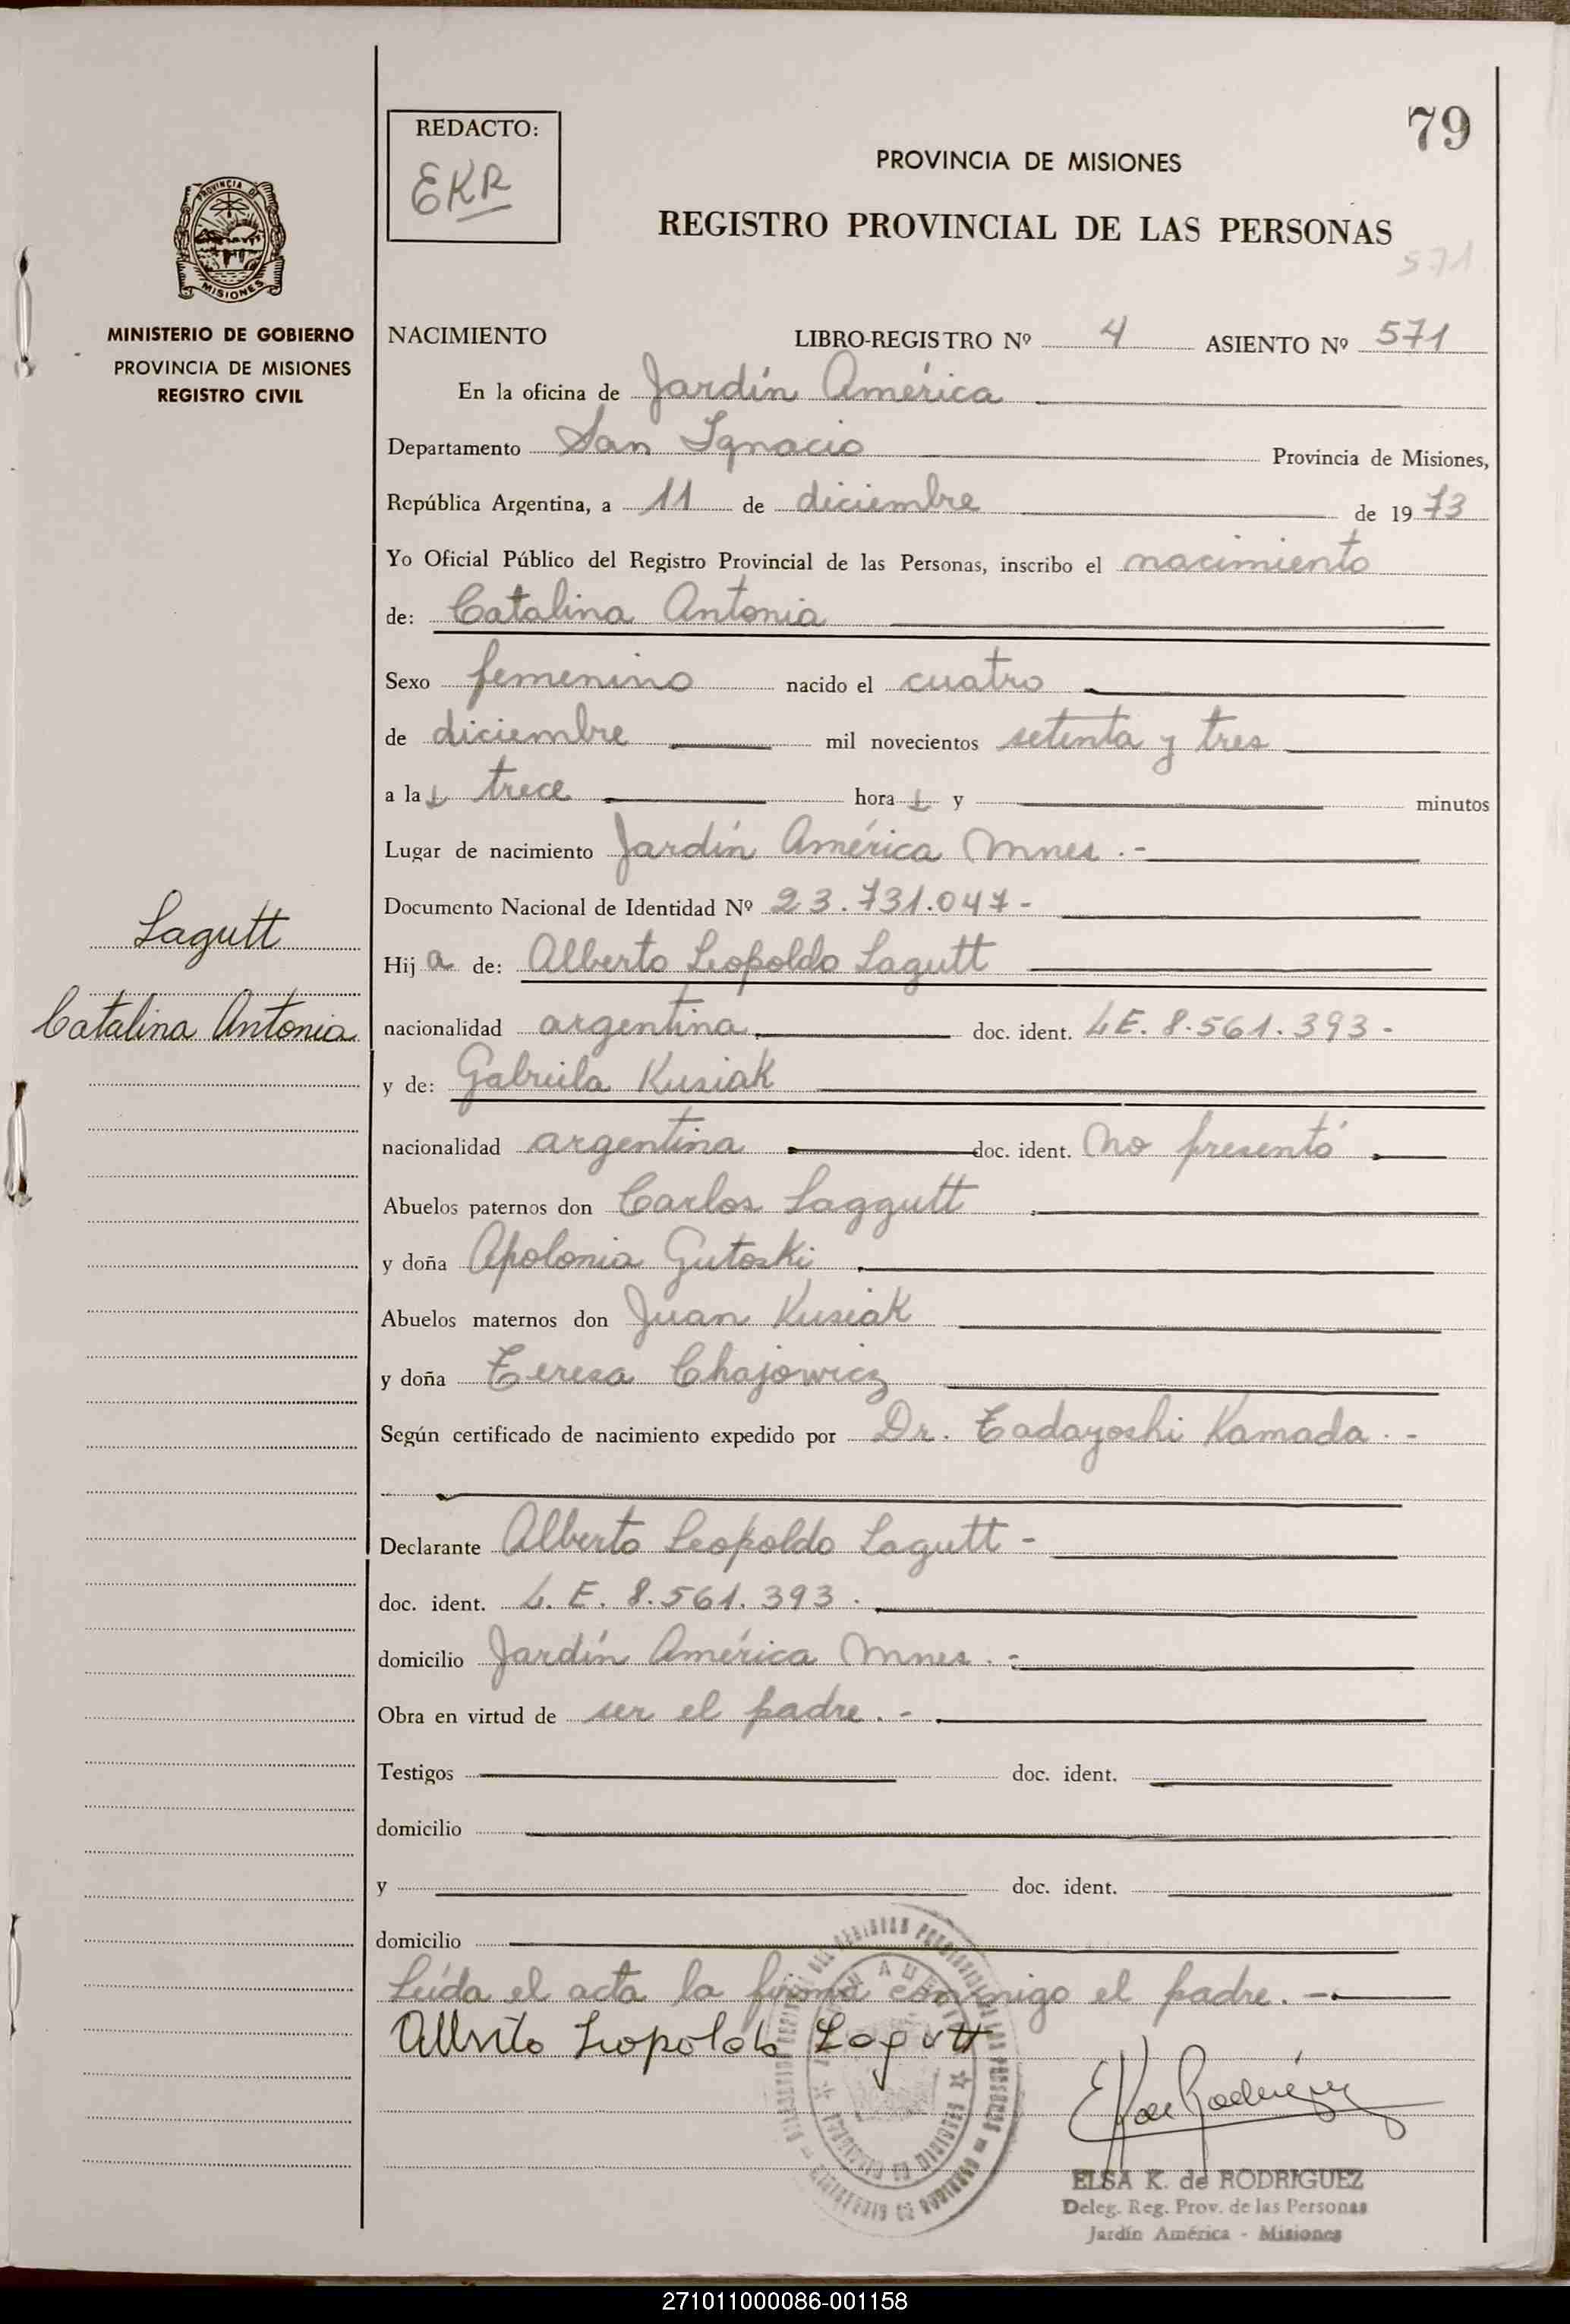 79
REDACTO:
EKR
PROVINCIA DE MISIONES
REGISTRO PROVINCIAL DE LAS PERSONAS
571
PROVINCIA DE
MISIONES
MINISTERIO DE GOBIERNO
PROVINCIA DE MISIONES
REGISTRO CIVIL
NACIMIENTO LIBRO-REGISTRO Nº 4 ASIENTO Nº 571
En la oficina de Jardín América
Departamento San Ignacio Provincia de Misiones,
República Argentina, a 11 de diciembre de 1973
Yo Oficial Público del Registro Provincial de las Personas, inscribo el nacimiento
de: Catalina Antonia
Sexo femenino nacido el cuatro
de diciembre mil novecientos setenta y tres
a las trece horas y minutos
Lugar de nacimiento Jardín América Mnes.-
Documento Nacional de Identidad Nº 23.731.047-
Lagutt
Hija de: Alberto Leopoldo Lagutt
Catalina Antonia
nacionalidad argentina doc. ident. L.E. 8.561.393-
y de: Gabriela Kusiak
nacionalidad argentina doc. ident. no presentó
Abuelos paternos don Carlos Laggutt
y doña Apolonia Gutoski
Abuelos maternos don Juan Kusiak
y doña Teresa Chajowicz
Según certificado de nacimiento expedido por Dr. Tadayoshi Kamada.-
Declarante Alberto Leopoldo Lagutt-
doc. ident. L.E. 8.561.393.
domicilio Jardín América Mnes.-
Obra en virtud de ser el padre.-
Testigos doc. ident.
domicilio
y doc. ident.
domicilio
Leída el acta la firma conmigo el padre.-
Alberto Leopoldo Lagutt
ELSA K. de RODRIGUEZ
Deleg. Reg. Prov. de las Personas
Jardín América - Misiones
271011000086-001158